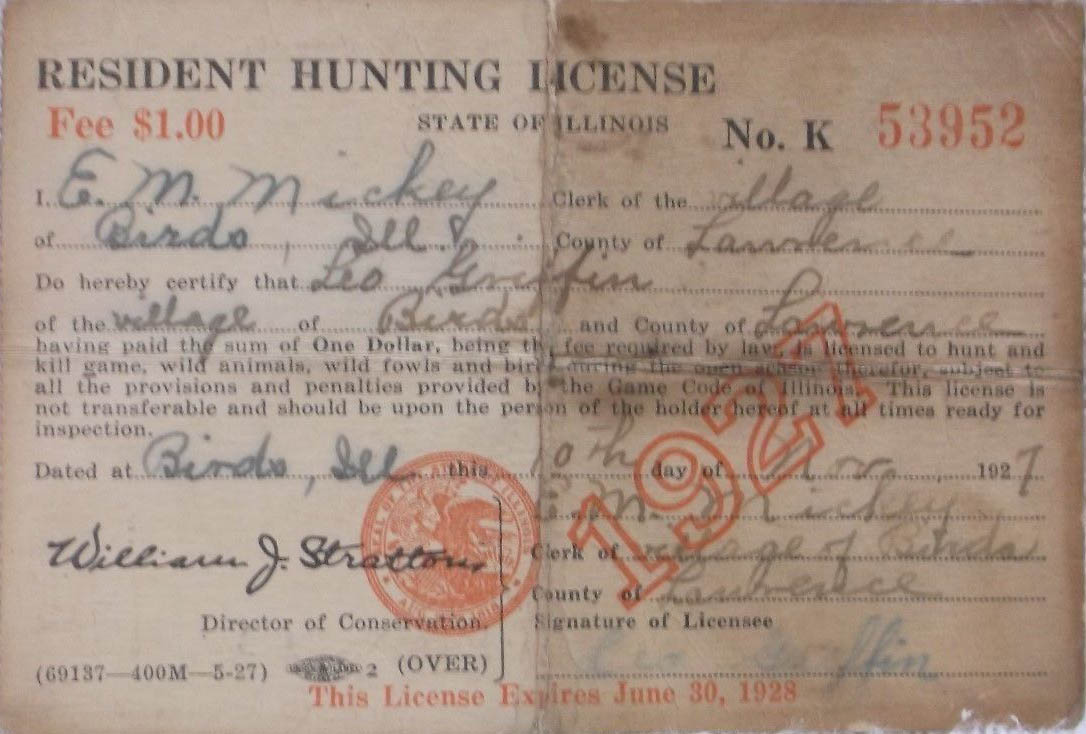 RESIDENT HUNTING LICENSE
Fee $1.00 STATE OF ILLINOIS No. K 53952
I, E. M. Mickey Clerk of the village
of Birds, Ill. County of Lawrence
Do hereby certify that Leo Griffin
of the village of Birds and County of Lawrence
having paid the sum of One Dollar, being the fee required by law, is licensed to hunt and
kill game, wild animals, wild fowls and birds during the open season therefor, subject to
all the provisions and penalties provided by the Game Code of Illinois. This license is
not transferable and should be upon the person of the holder hereof at all times ready for
inspection.
1927
Dated at Birds, Ill this 10th day of Nov, 1927
E. M. Mickey
William J. Stratton Clerk of village of Birds
County of Lawrence
Director of Conservation Signature of Licensee
(69137—400M—5-27) 2 (OVER) Leo Griffin
This License Expires June 30, 1928